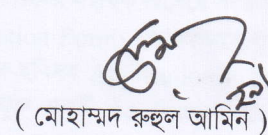 ( মোহাম্মদ রুহুল আমিন )